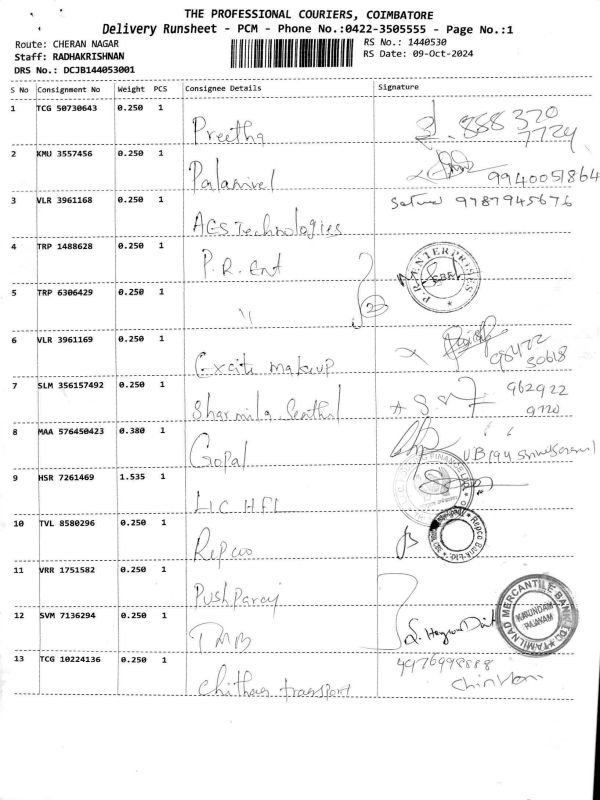 THE PROFESSIONAL COURIERS, COIMBATORE
Delivery Runsheet - PCM - Phone No.:0422-3505555 - Page No.:1
Route: CHERAN NAGAR
RS No.: 1440530
Staff: RADHAKRISHNAN
RS Date: 09-Oct-2024
DRS No.: DCJB144053001
S No Consignment No Weight PCS Consignee Details Signature
1 TCG 50730643 0.250 1 Preetha 888 320
7724
2 KMU 3557456 0.250 1 Palanivel 9940051864
3 VLR 3961168 0.250 1 AGS Technologies 9787945676
4 TRP 1488628 0.250 1 P.R. Ent P.R. ENTERPRISES CBE
5 TRP 6306429 0.250 1 "
6 VLR 3961169 0.250 1 Excite makeup 98422
30618
7 SLM 356157492 0.250 1 Sharmila Senthil 962922
9120
8 MAA 576450423 0.380 1 Gopal
9 HSR 7261469 1.535 1 LIC HFL
10 TVL 8580296 0.250 1 Repco Repco Bank Ltd.
11 VRR 1751582 0.250 1 Pushparaj
12 SVM 7136294 0.250 1 TMB TAMILNAD MERCANTILE BANK LTD.
13 TCG 10224136 0.250 1 transport